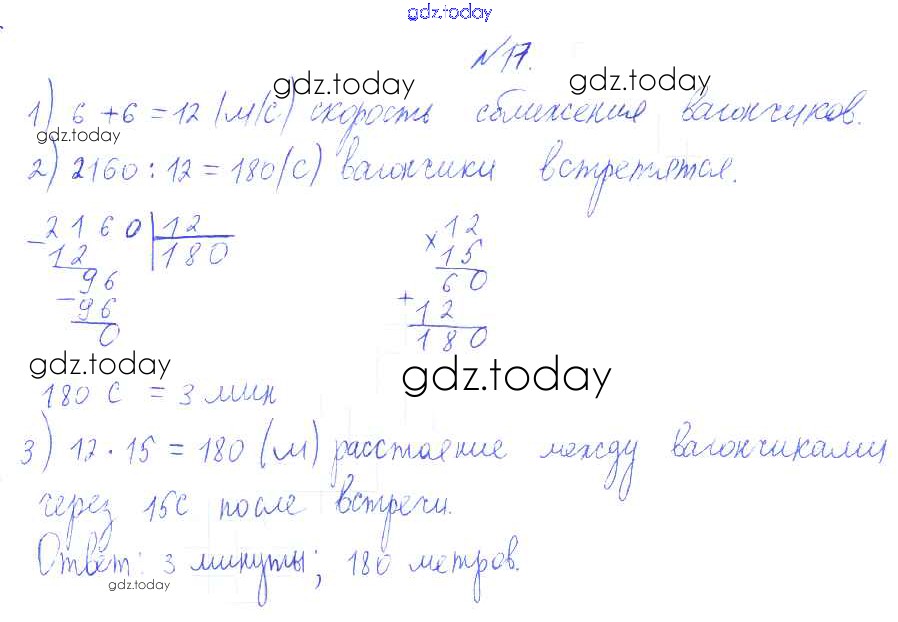 gdz.today
№17.
gdz.today gdz.today
1) 6 + 6 = 12 (м/с) скорость сближения вагончиков.
gdz.today
2) 2160 : 12 = 180 (с) вагончики встретятся.
- 2160 | 12
12 | 180
96
- 96
0
× 12
15
60
+ 12
180
gdz.today
gdz.today
180 с = 3 мин
3) 12 · 15 = 180 (м) расстояние между вагончиками
через 15с после встречи.
Ответ: 3 минуты; 180 метров.
gdz.today